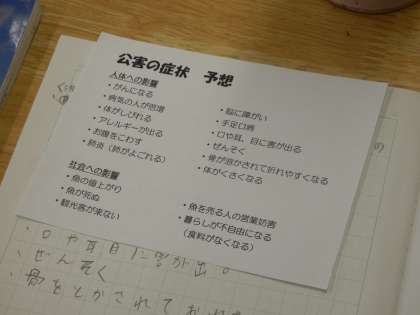 公害の症状 予想
人体への影響
・がんになる
・病気の人が急増
・体がしびれる
・アレルギーが出る
・お腹をこわす
・肺炎（肺がよごれる）
・脳に障がい
・手足口病
・口や耳、目に害が出る
・ぜんそく
・骨が溶かされて折れやすくなる
・体がくさくなる
社会への影響
・魚の値上がり
・魚が死ぬ
・観光客が来ない
・魚を売る人の営業妨害
・暮らしが不自由になる
（食料がなくなる）
・口や耳目に害が出る
・ぜんそく
・骨をとかされておれ
の